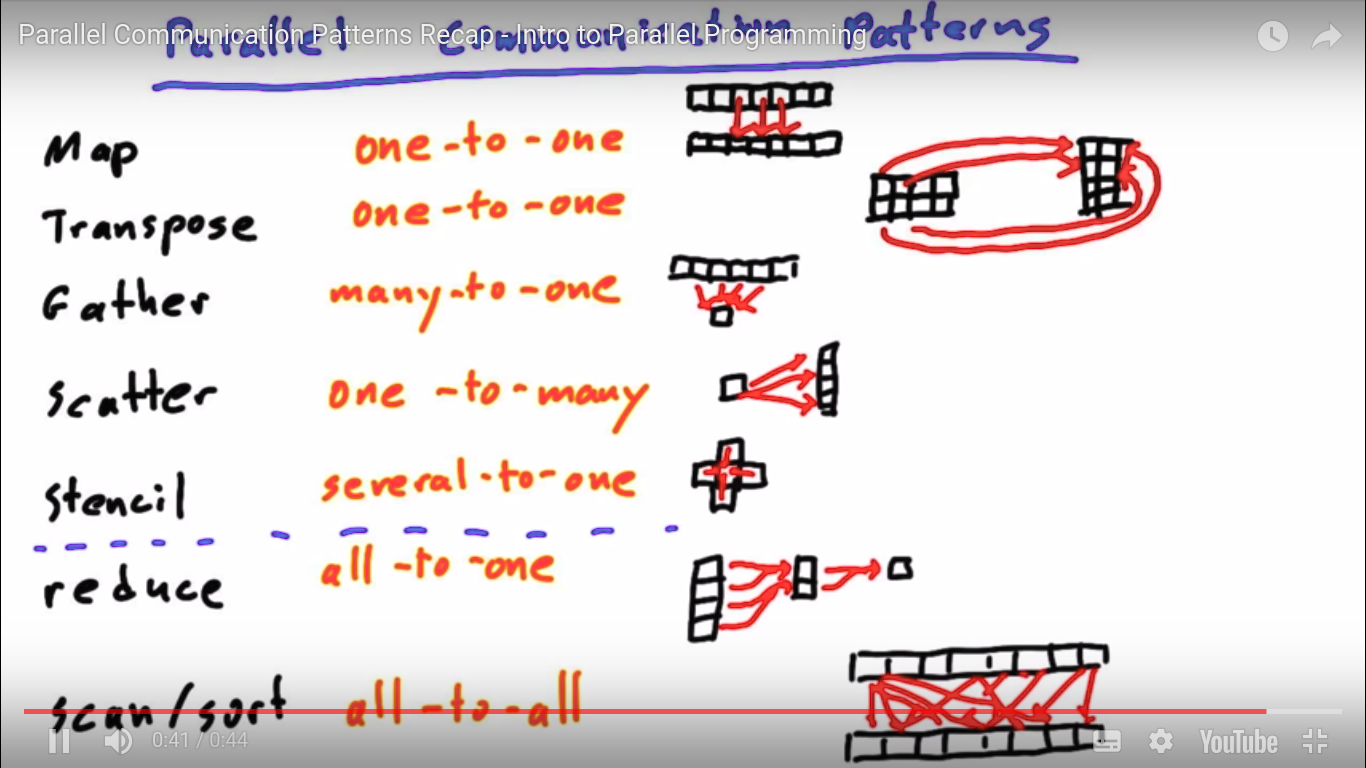 Parallel Communication Patterns Recap - Intro to Parallel Programming
Parallel Communication Patterns
Map one-to-one
Transpose one-to-one
Gather many-to-one
Scatter one-to-many
Stencil several-to-one
reduce all-to-one
scan/sort all-to-all
0:41 / 0:44
YouTube